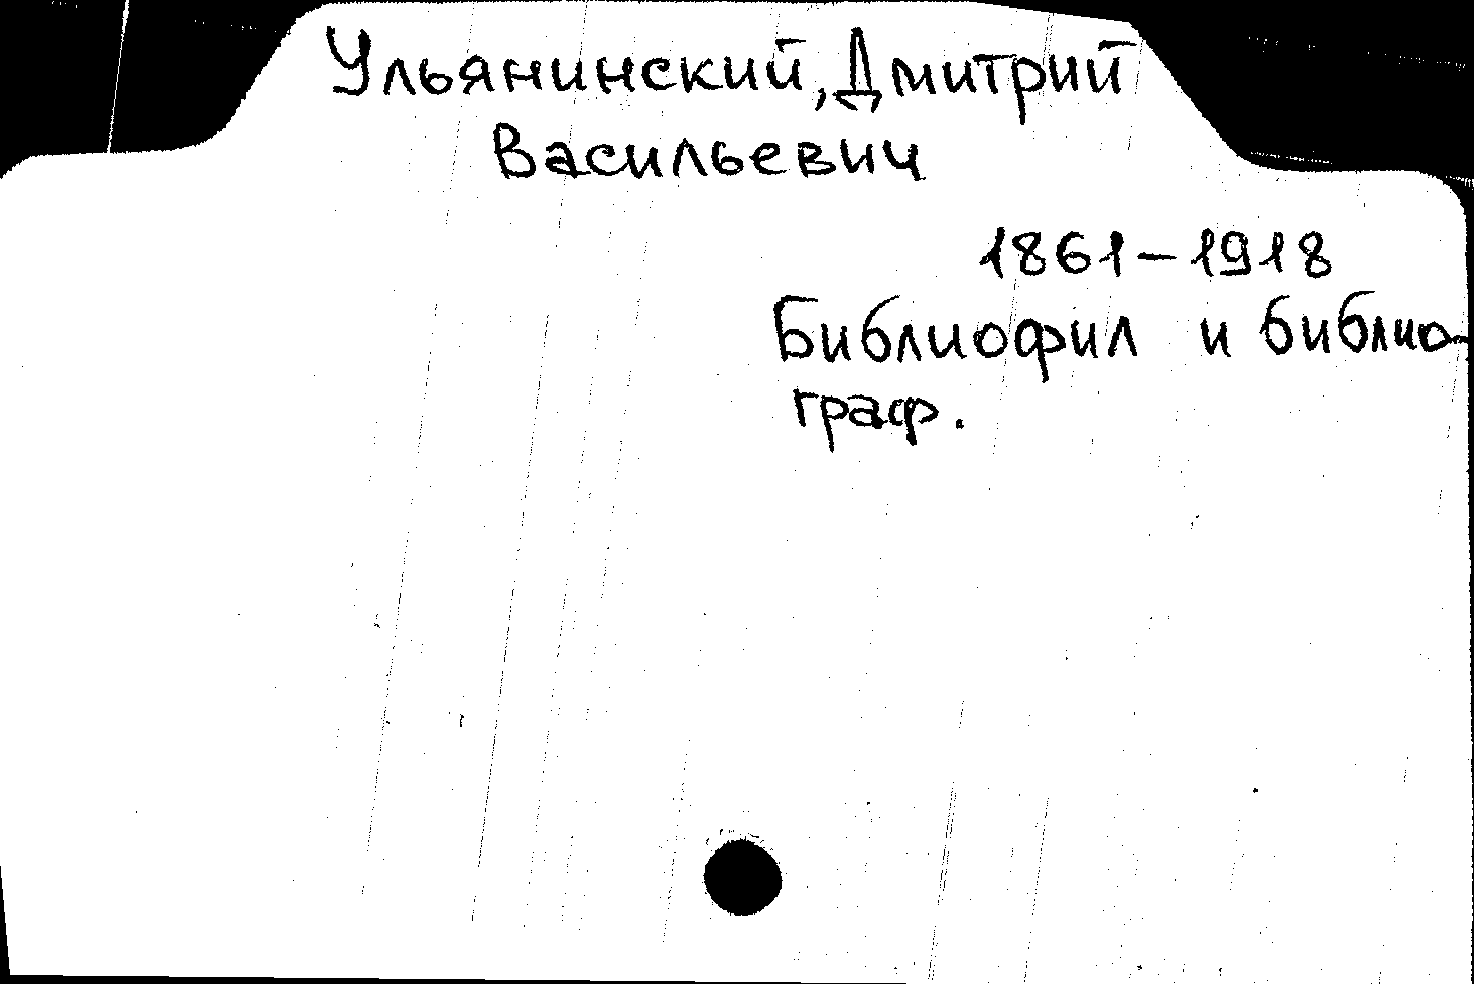 Ульянинский, Дмитрий
Васильевич
1861–1918
Библиофил и библио-
граф.